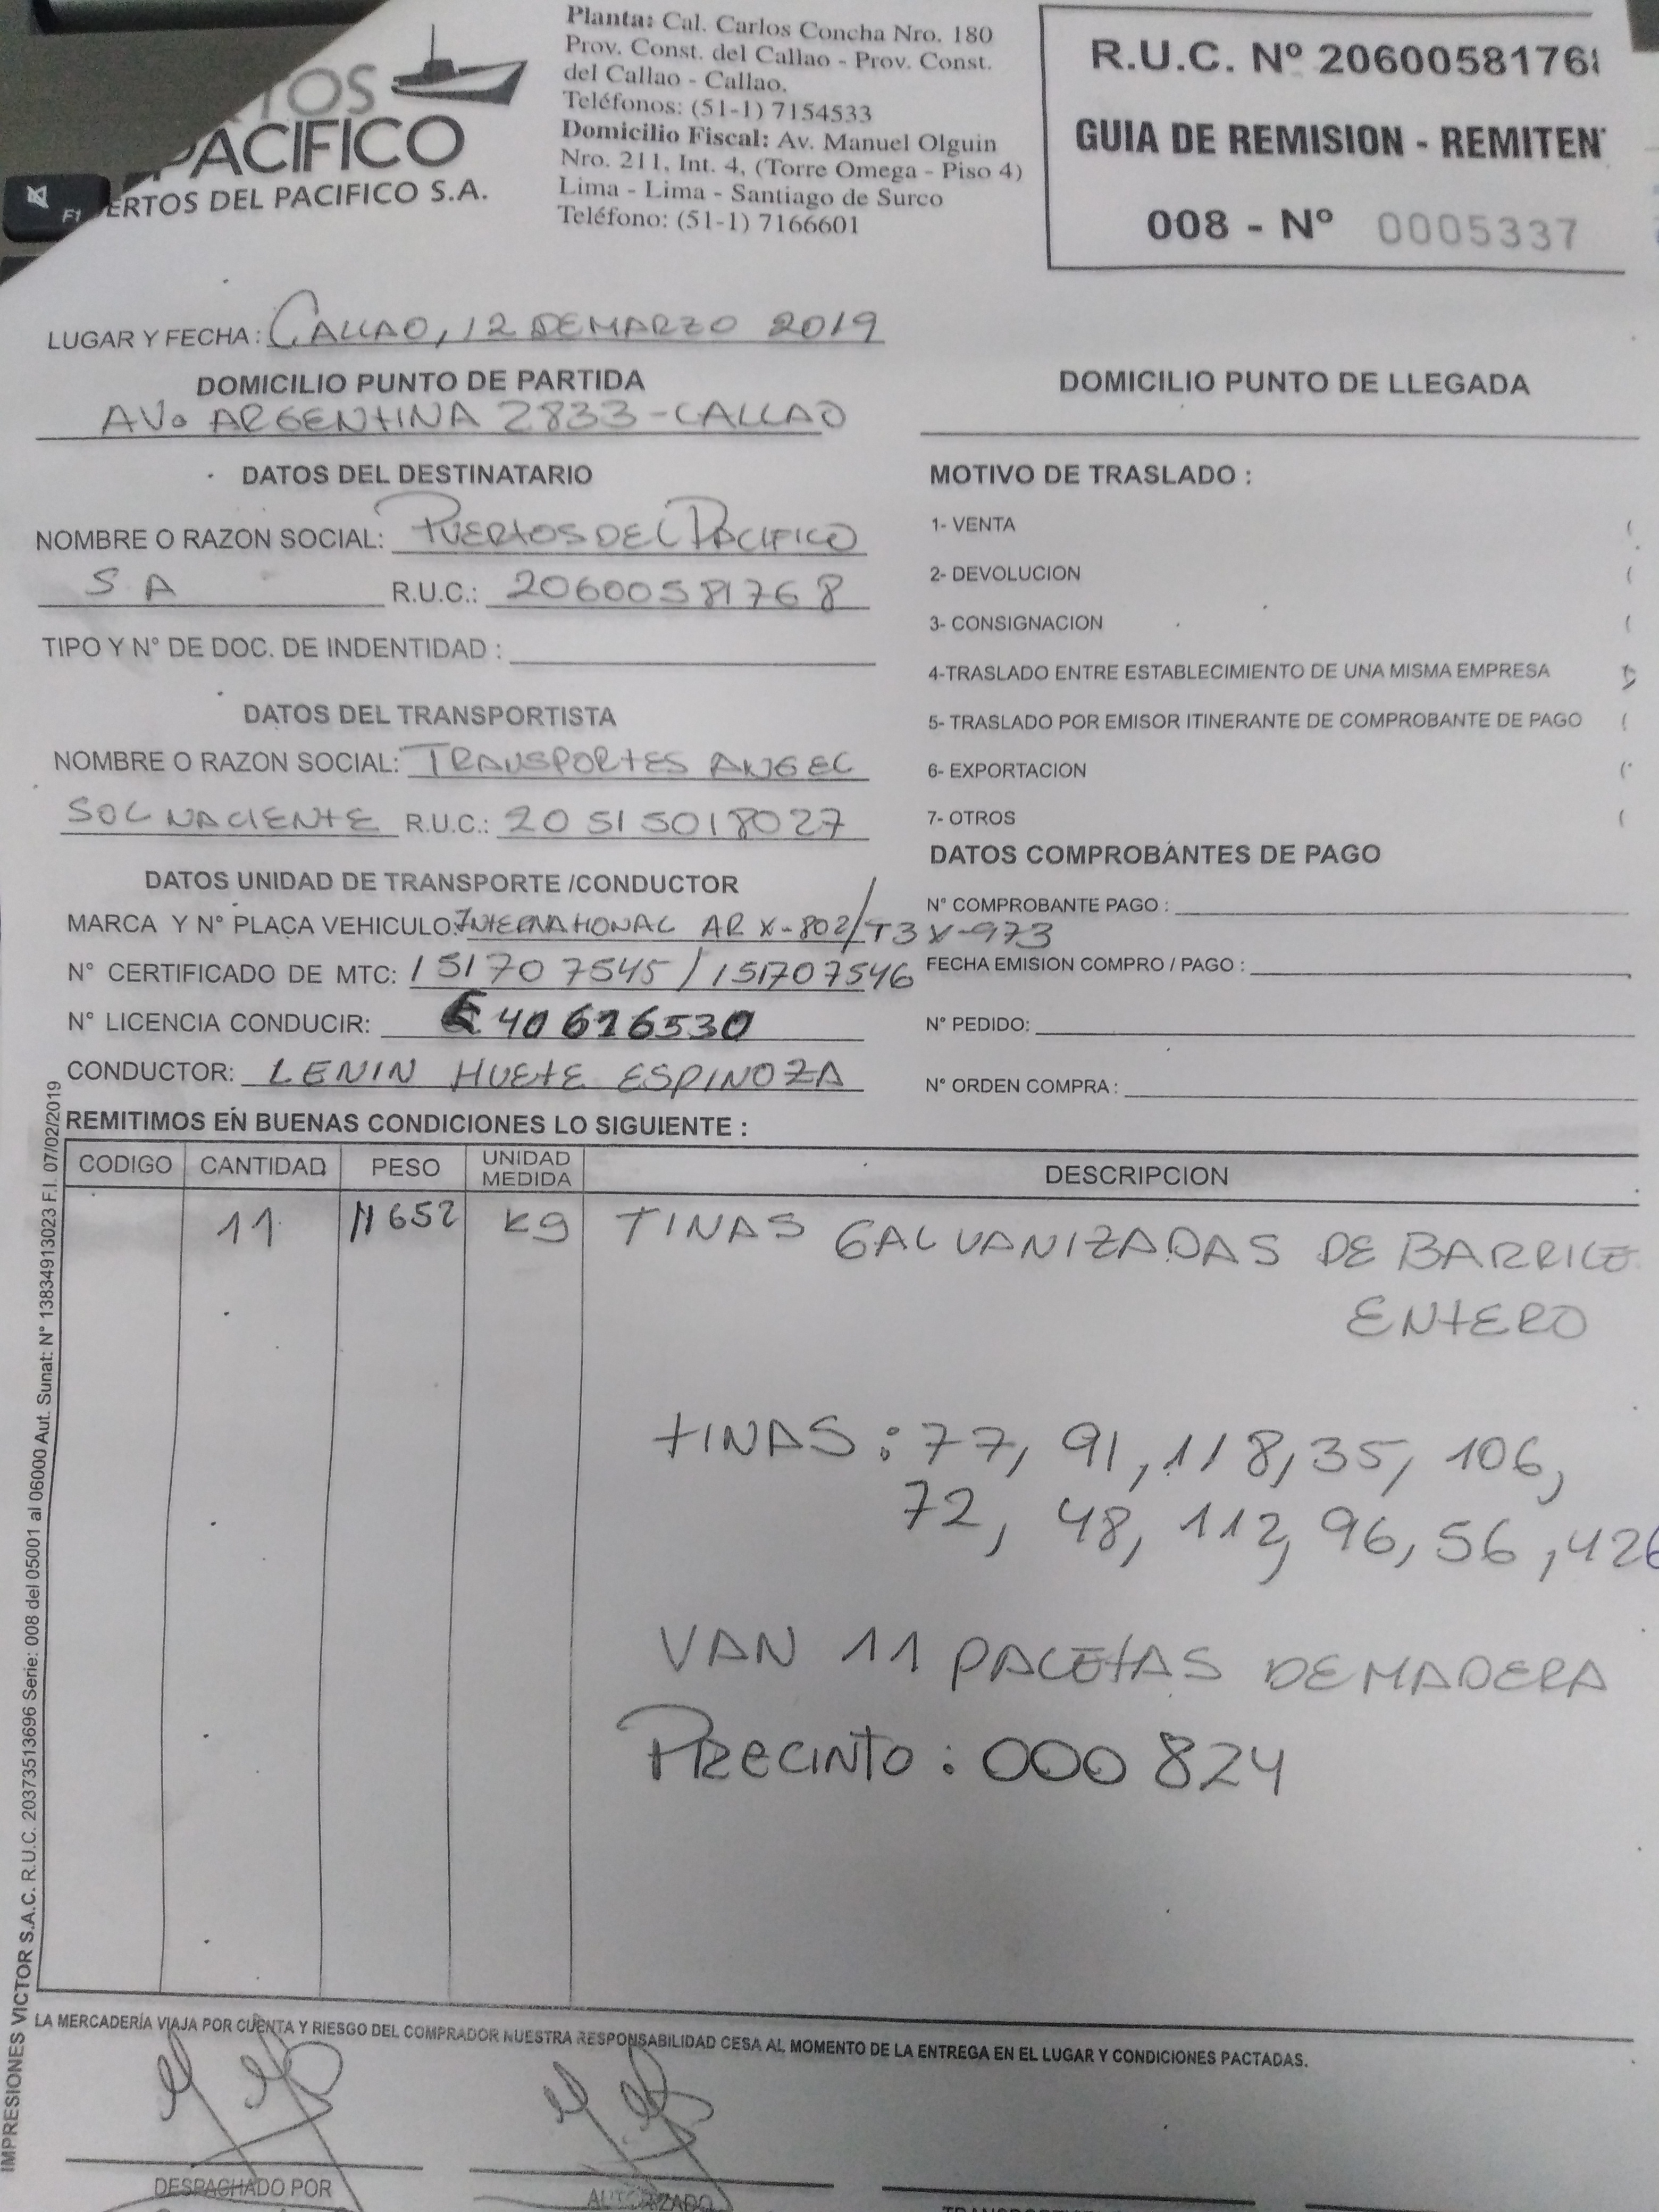 TOS
PACIFICO
ERTOS DEL PACIFICO S.A.
F1
Planta: Cal. Carlos Concha Nro. 180
Prov. Const. del Callao - Prov. Const.
del Callao - Callao.
Teléfonos: (51-1) 7154533
Domicilio Fiscal: Av. Manuel Olguin
Nro. 211, Int. 4, (Torre Omega - Piso 4)
Lima - Lima - Santiago de Surco
Teléfono: (51-1) 7166601
R.U.C. Nº 20600581768
GUIA DE REMISION - REMITEN
008 - Nº 0005337
LUGAR Y FECHA: CALLAO, 12 DE MARZO 2019
DOMICILIO PUNTO DE PARTIDA
AV. ARGENTINA 2833 - CALLAO
DOMICILIO PUNTO DE LLEGADA
DATOS DEL DESTINATARIO
NOMBRE O RAZON SOCIAL: PUERTOS DEL PACIFICO
S A R.U.C.: 20600581768
TIPO Y N° DE DOC. DE INDENTIDAD :
DATOS DEL TRANSPORTISTA
NOMBRE O RAZON SOCIAL: TRANSPORTES ANGEL
SOL NACIENTE R.U.C.: 20515018027
DATOS UNIDAD DE TRANSPORTE /CONDUCTOR
MARCA Y N° PLACA VEHICULO: INTERNATIONAL ARX-802/T3X-973
N° CERTIFICADO DE MTC: 151707545 / 151707546
N° LICENCIA CONDUCIR: 40616530
CONDUCTOR: LENIN HUETE ESPINOZA
MOTIVO DE TRASLADO :
1- VENTA (
2- DEVOLUCION (
3- CONSIGNACION (
4-TRASLADO ENTRE ESTABLECIMIENTO DE UNA MISMA EMPRESA
5- TRASLADO POR EMISOR ITINERANTE DE COMPROBANTE DE PAGO (
6- EXPORTACION (
7- OTROS (
DATOS COMPROBANTES DE PAGO
N° COMPROBANTE PAGO :
FECHA EMISION COMPRO / PAGO :
N° PEDIDO:
N° ORDEN COMPRA :
REMITIMOS EN BUENAS CONDICIONES LO SIGUIENTE :
CODIGO CANTIDAD PESO UNIDAD MEDIDA DESCRIPCION
11 11652 Kg TINAS GALVANIZADAS DE BARRILE
ENTERO
TINAS : 77, 91, 118, 35, 106,
72, 48, 112, 96, 56, 426
VAN 11 PALETAS DE MADERA
PRECINTO : 000824
LA MERCADERÍA VIAJA POR CUENTA Y RIESGO DEL COMPRADOR NUESTRA RESPONSABILIDAD CESA AL MOMENTO DE LA ENTREGA EN EL LUGAR Y CONDICIONES PACTADAS.
DESPACHADO POR
AUTORIZADO
IMPRESIONES VICTOR S.A.C. R.U.C. 20373513696 Serie: 008 del 05001 al 06000 Aut. Sunat: N° 13834913023 F.I. 07/02/2019